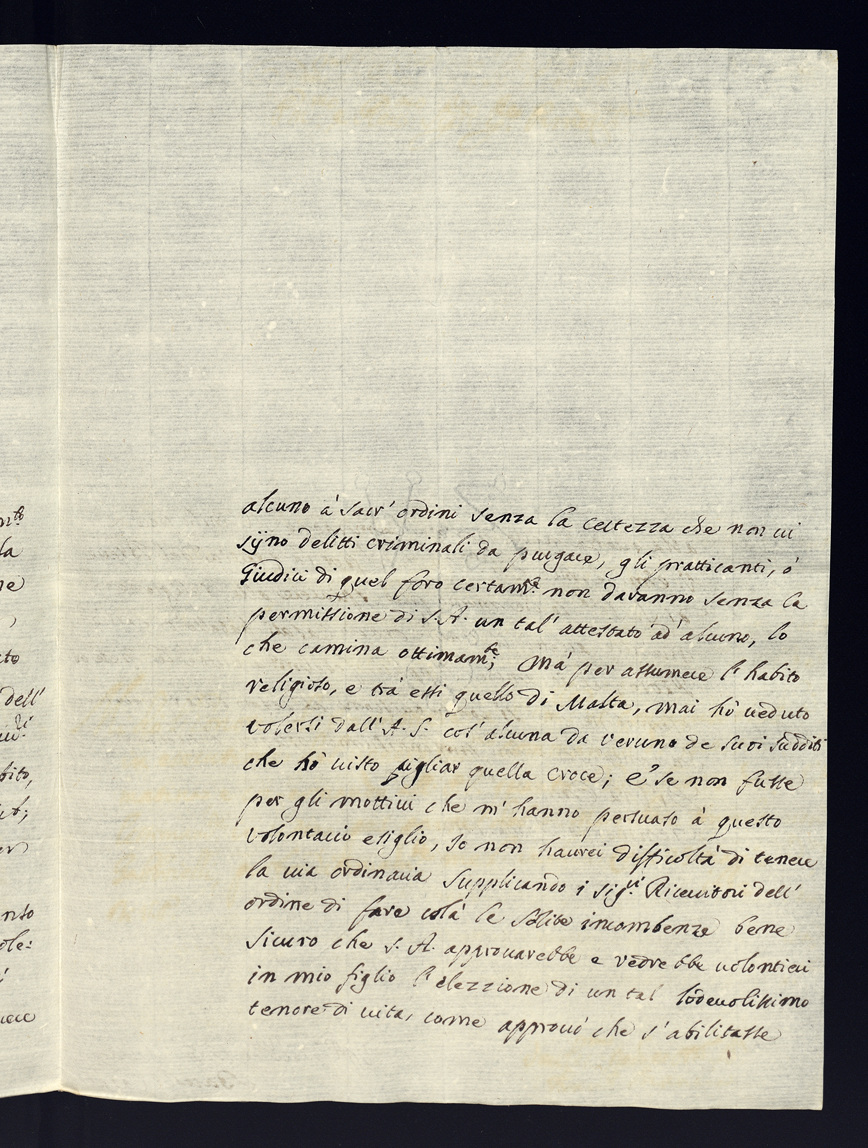 alcuno à sacr' ordini senza la certezza che non ui
sijno delitti criminali da purgare, gli pratticanti, ò
Giudici di quel foro certam.te non davanno senza la
permissione di S.A. un tal' attestato ad' alcuno, lo
che camina ottimam.te; Mà per assumere l' habito
religioso, e trà essi quello di Malta, mai hò ueduto
volersi dall' A.S. cos' alcuna da veruno de suoi sudditi
che hò uisto pigliar quella croce; e se non fusse
per gli mottiui che m' hanno persuaso à questo
volontario esiglio, Io non haurei difficoltà di tenere
la uia ordinaria supplicando i sig.ri Riceuitori dell'
ordine di fare colà le solite incombenze bene
sicuro che S.A. approuarebbe e vedrebbe uolontieri
in mio figlio l' elezzione di un tal' lodeuolissimo
tenore di uita, come approuò che s' abilitasse
n.to
la
ne
,
ato
dell'
bito,
nto
ole: